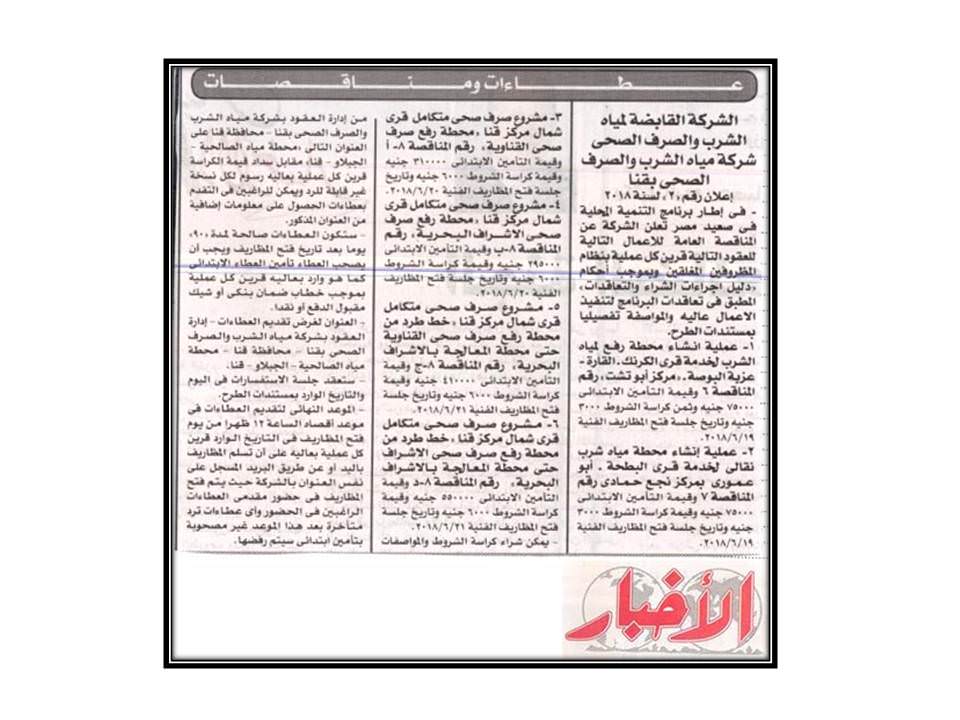 عطاءات ومناقصات
الشركة القابضة لمياه
الشرب والصرف الصحى
شركة مياه الشرب والصرف
الصحى بقنا
إعلان رقم «٢» لسنة ٢٠١٨
- فى إطار برنامج التنمية المحلية
فى صعيد مصر تعلن الشركة عن
المناقصة العامة للأعمال التالية
للعقود التالية قرين كل عملية بنظام
المظروفين المغلقين وبموجب أحكام
«دليل اجراءات الشراء والتعاقدات»
المطبق فى تعاقدات البرنامج لتنفيذ
الاعمال عاليه والمواصفة تفصيليا
بمستندات الطرح.
١- عملية انشاء محطة رفع لمياه
الشرب لخدمة قرى الكرنك. القارة -
عزبة البوصة. «مركز أبو تشت» رقم
المناقصة ٦ وقيمة التأمين الابتدائى
٧٥٠٠٠ جنيه وثمن كراسة الشروط ٣٠٠٠
جنيه وتاريخ جلسة فتح المظاريف الفنية
٢٠١٨/٦/١٩.
٢- عملية إنشاء محطة مياه شرب
نقالى لخدمة قرى البطحة. أبو
عمورى بمركز نجع حمادى رقم
المناقصة ٧ وقيمة التأمين الابتدائى
٧٥٠٠٠ جنيه وقيمة كراسة الشروط ٣٠٠٠
جنيه وتاريخ جلسة فتح المظاريف الفنية
٢٠١٨/٦/١٩.
٣- مشروع صرف صحى متكامل قرى
شمال مركز قنا «محطة رفع صرف
صحى القناوية» رقم المناقصة ٨- أ
وقيمة التأمين الابتدائى ٣١٠٠٠٠ جنيه
وقيمة كراسة الشروط ٦٠٠٠ جنيه وتاريخ
جلسة فتح المظاريف الفنية ٢٠١٨/٦/٢٠.
٤- مشروع صرف صحى متكامل قرى
شمال مركز قنا «محطة رفع صرف
صحى الاشراف البحرية» رقم
المناقصة ٨-ب وقيمة التأمين الابتدائى
٢٩٥٠٠٠ جنيه وقيمة كراسة الشروط
٦٠٠٠ جنيه وتاريخ جلسة فتح المظاريف
الفنية ٢٠١٨/٦/٢٠.
٥- مشروع صرف صحى متكامل
قرى شمال مركز قنا «خط طرد من
محطة رفع صرف صحى القناوية
حتى محطة المعالجة بالاشراف
البحرية» رقم المناقصة ٨-ج وقيمة
التأمين الابتدائى ٤١٠٠٠٠ جنيه وقيمة
كراسة الشروط ٦٠٠٠ جنيه وتاريخ جلسة
فتح المظاريف الفنية ٢٠١٨/٦/٢١.
٦- مشروع صرف صحى متكامل
قرى شمال مركز قنا «خط طرد من
محطة رفع صرف صحى الاشراف
حتى محطة المعالجة بالاشراف
البحرية» رقم المناقصة ٨-د وقيمة
التأمين الابتدائى ٥٥٠٠٠٠ جنيه وقيمة
كراسة الشروط ٦٠٠٠ جنيه وتاريخ جلسة
فتح المظاريف الفنية ٢٠١٨/٦/٢١.
- يمكن شراء كراسة الشروط والمواصفات
من إدارة العقود بشركة مياه الشرب
والصرف الصحى بقنا - محافظة قنا على
العنوان التالى: محطة مياه الصالحية -
الجبلاو - قنا، مقابل سداد قيمة الكراسة
قرين كل عملية بعاليه رسوم لكل نسخة
غير قابلة للرد ويمكن للراغبين فى التقدم
بعطاءات الحصول على معلومات إضافية
من العنوان المذكور.
- ستكون العطاءات صالحة لمدة «٩٠»
يوما بعد تاريخ فتح المظاريف ويجب أن
يصحب العطاء تأمين العطاء الابتدائى
كما هو وارد بعاليه قرين كل عملية
بموجب خطاب ضمان بنكى أو شيك
مقبول الدفع أو نقدا.
- العنوان لغرض تقديم العطاءات - إدارة
العقود بشركة مياه الشرب والصرف
الصحى بقنا - محافظة قنا - محطة
مياه الصالحية - الجبلاو - قنا.
- ستعقد جلسة الاستفسارات فى اليوم
والتاريخ الوارد بمستندات الطرح.
- الموعد النهائى لتقديم العطاءات فى
موعد أقصاه الساعة ١٢ ظهرا من يوم
فتح المظاريف فى التاريخ الوارد قرين
كل عملية بعاليه على أن تسلم المظاريف
باليد أو عن طريق البريد المسجل على
نفس العنوان بالشركة حيث يتم فتح
المظاريف فى حضور مقدمى العطاءات
الراغبين فى الحضور وأى عطاءات ترد
متأخرة بعد هذا الموعد غير مصحوبة
بتأمين ابتدائى سيتم رفضها.
الأخبار